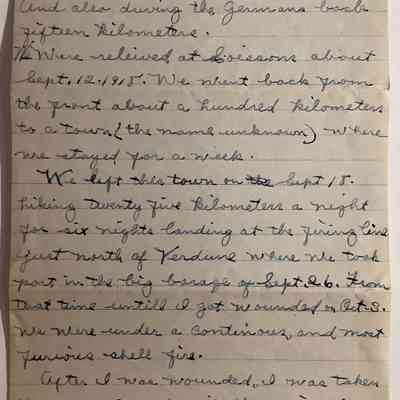 and also driving the Germans back
fifteen kilometers.
We were releived at Soissons about
Sept. 12. 1918. We went back from
the front about a hundred kilometers
to a town (the name unknown) where
we stayed for a week.
We left this town on the Sept 18.
hiking twenty five kilometers a night
for six nights landing at the firing line
just north of Verdune where we took
part in the big barage of Sept. 26. From
that time untill I got wounded on Oct 3.
We were under a continous, and most
furious shell fire.
After I was wounded, I was taken